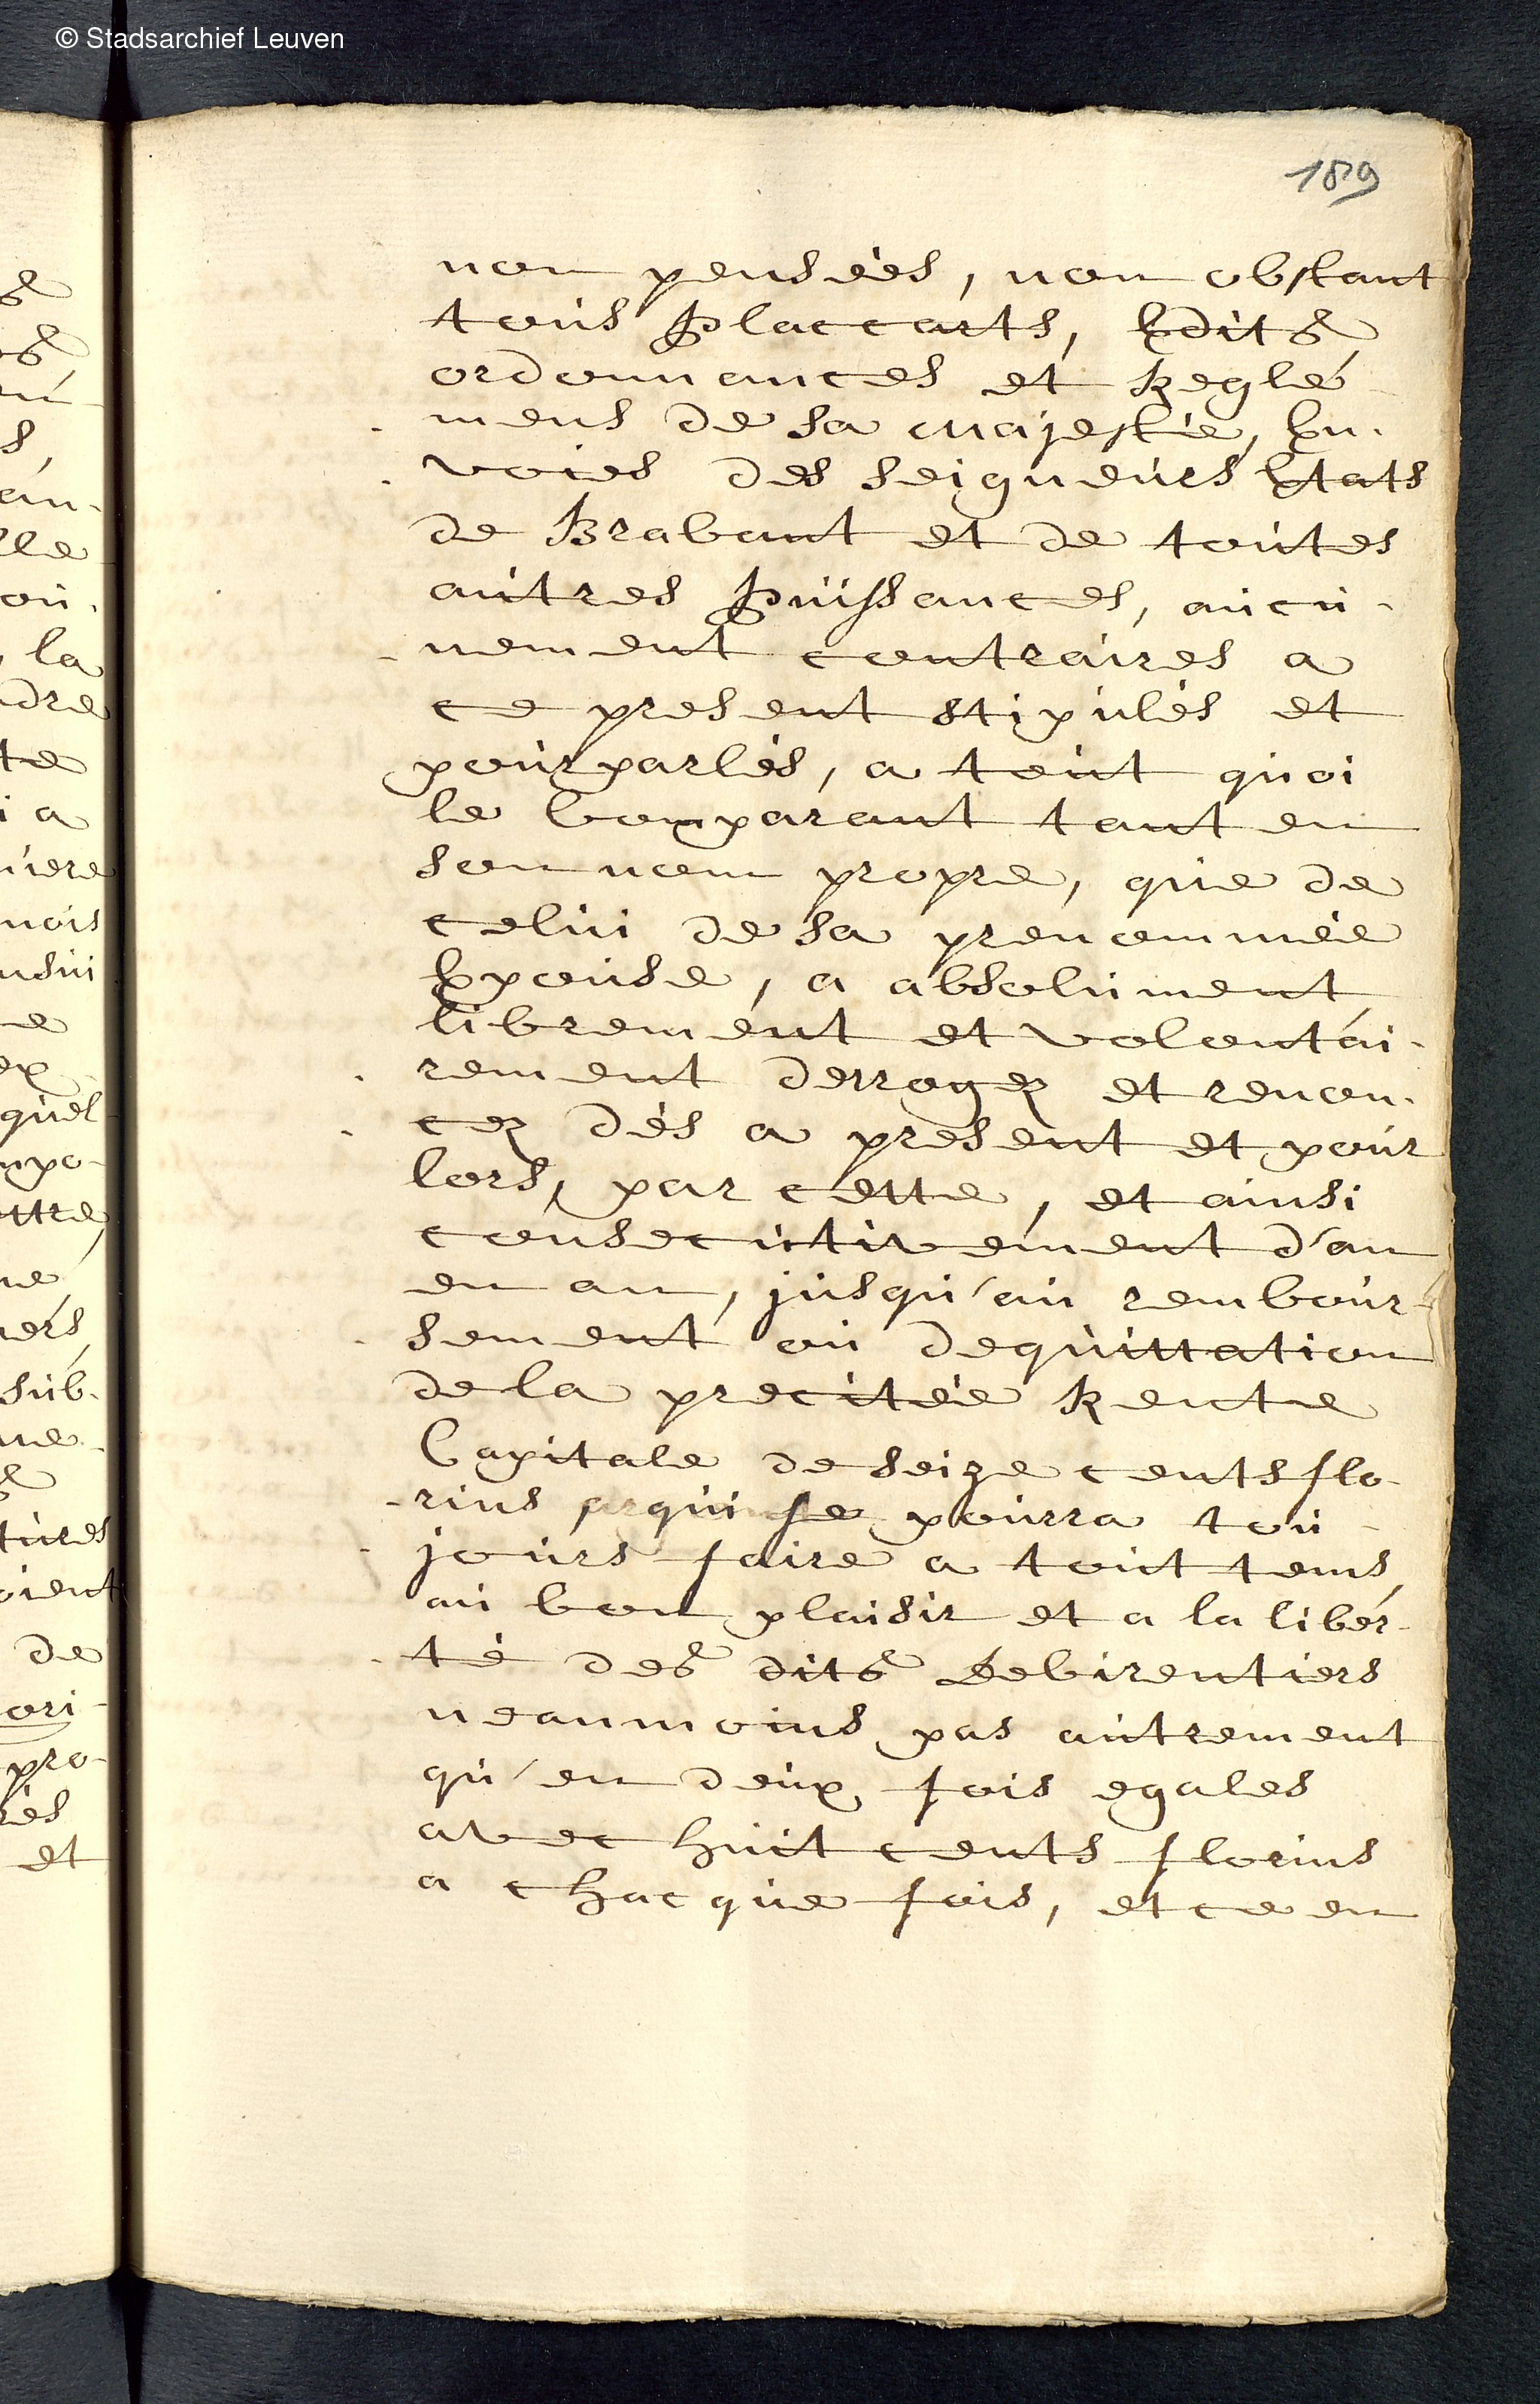 © Stadsarchief Leuven
189
non pensées, non obstant
tous Placcarts, Edits
ordonnances et Reglé
mens de sa Majestée, En-
-voies des seigneurs Etats
de Brabant et de toutes
autres Puissances, aucu-
-nement contraires a
ce present stipulés et
pourparlés, a tout quoi
le Comparant tant en
son nom propre, que de
celui de sa prenommée
Epouse, a absolument
librement et volontai-
-rement derroger et renon-
-cer dés a present et pour
lors, par cette, et ainsi
consecutivement d'an
en an, jusqu'au rembour-
-sement ou dequittation
de la precitée Rente
Capitale de seize cents flo-
-rins qui se pourra tou-
-jours faire a tout tems
au bon plaisir et a la libér-
-té des dits Debirentiers
neanmoins pas autrement
qu'en deux fois egales
avec huit cents florins
a chacque fois, et ce en